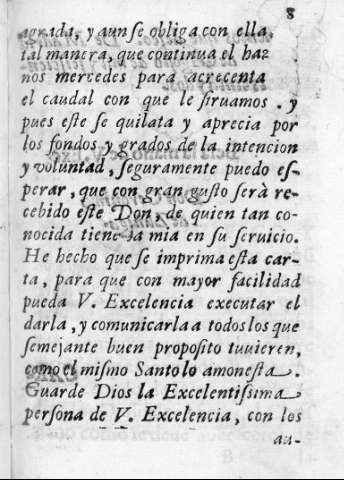 8
agrada, y aun se obliga con ella,
tal manera, que continua el haz
nos mercedes para acrecenta
el caudal con que le siruamos. y
pues este se quilata y aprecia por
los fondos y grados de la intencion
y voluntad, seguramente puedo es-
perar, que con gran gusto serà re-
cebido este Don, de quien tan co-
nocida tiene la mia en su seruicio.
He hecho que se imprima esta car-
ta, para que con mayor facilidad
pueda V. Excelencia executar el
darla, y comunicarla a todos los que
semejante buen proposito tuuieren,
como el mismo Santo lo amonesta.
Guarde Dios la Excelentissima
persona de V. Excelencia, con los
au-